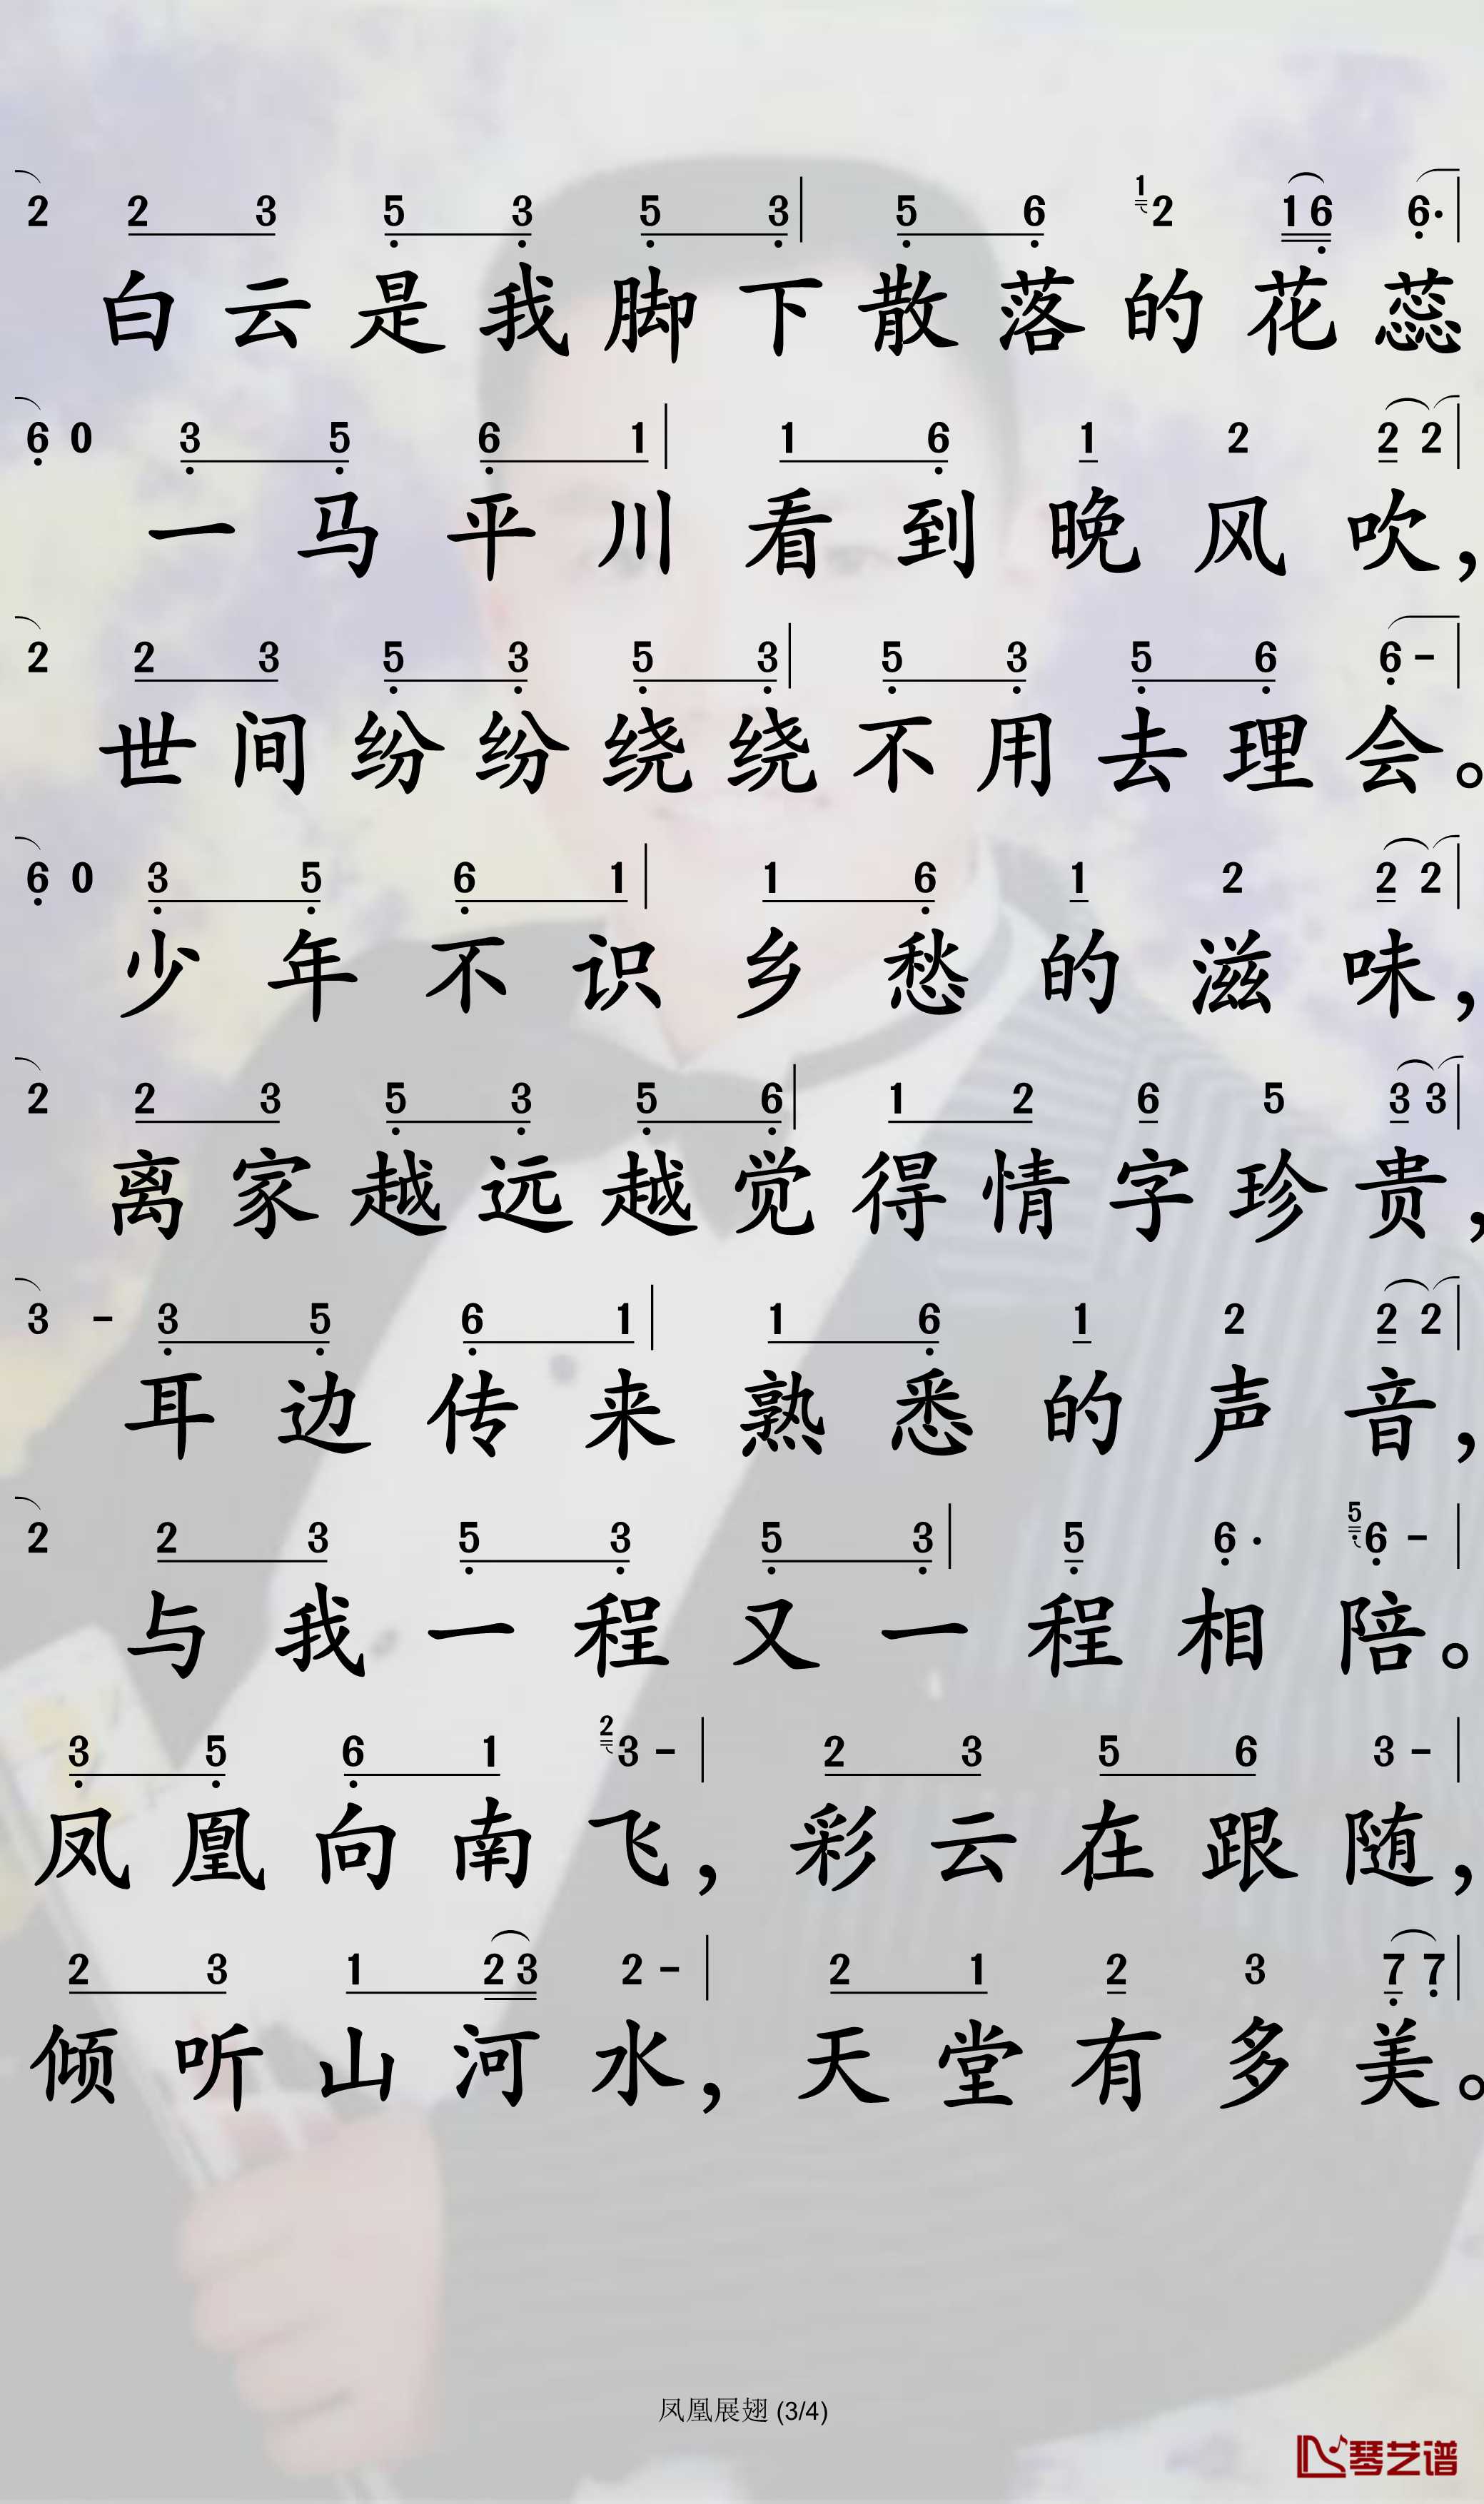 2 2 3 5 3 5 3 | 5 6 1 2 1 6 6· |
白云是我脚下散落的花蕊
6 0 3 5 6 1 | 1 6 1 2 2 2 |
一马平川看到晚风吹，
2 2 3 5 3 5 3 | 5 3 5 6 6 - |
世间纷纷绕绕不用去理会。
6 0 3 5 6 1 | 1 6 1 2 2 2 |
少年不识乡愁的滋味，
2 2 3 5 3 5 6 | 1 2 6 5 3 3 |
离家越远越觉得情字珍贵，
3 - 3 5 6 1 | 1 6 1 2 2 2 |
耳边传来熟悉的声音，
2 2 3 5 3 5 3 | 5 6· 5 6 - |
与我一程又一程相陪。
3 5 6 1 2 3 - | 2 3 5 6 3 - |
凤凰向南飞，彩云在跟随，
2 3 1 2 3 2 - | 2 1 2 3 7 7 |
倾听山河水，天堂有多美。
凤凰展翅 (3/4)
琴艺谱